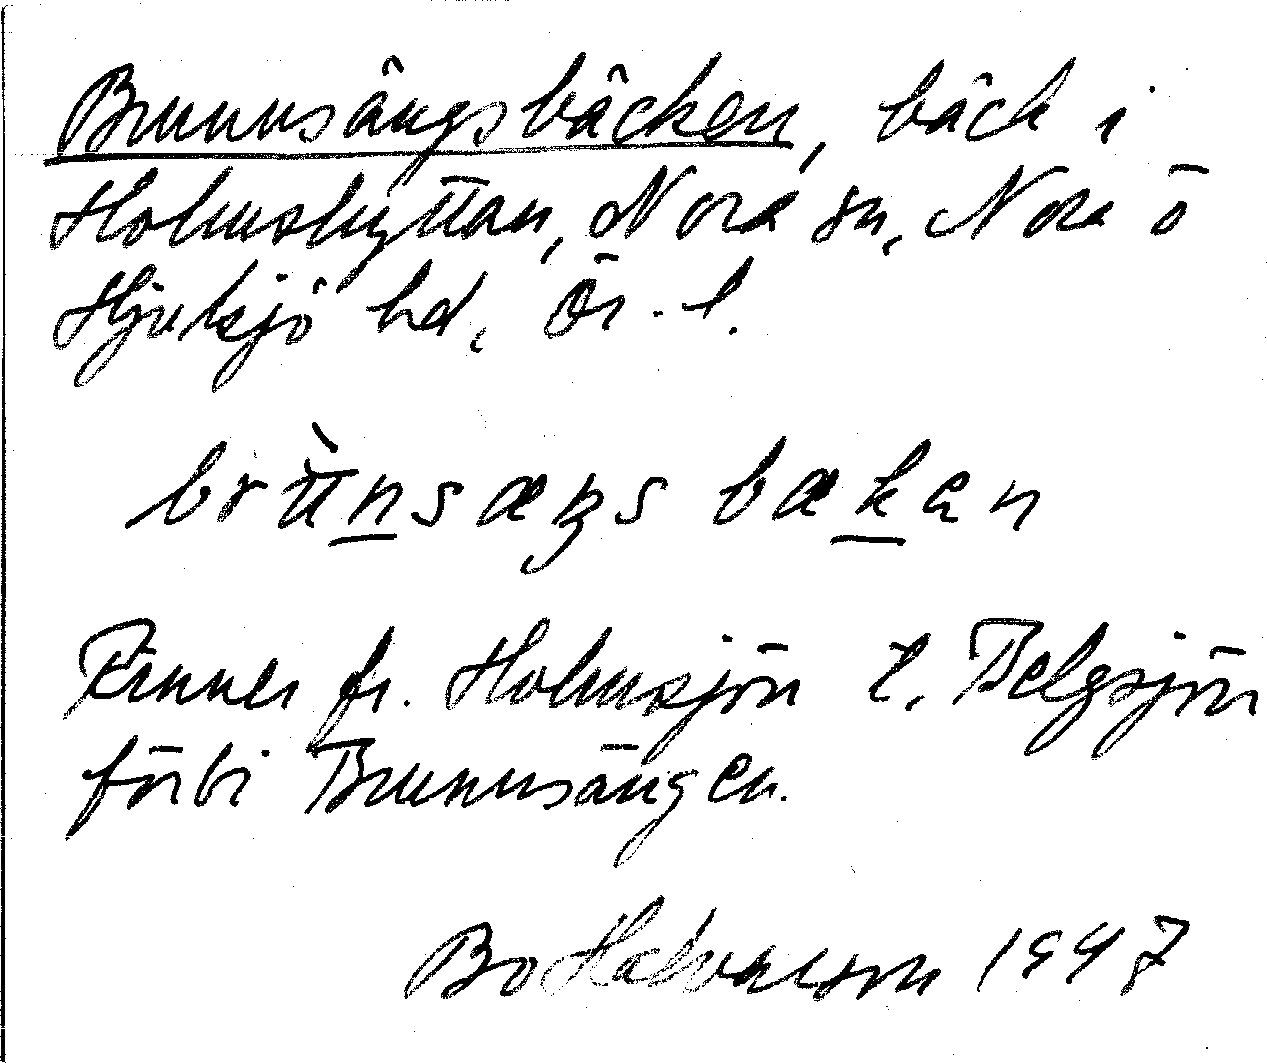 Brunnsängsbäcken, bäck i
Holmshyttan, Nora sn, Nora o
Hjulsjö hd, Ör. l.
bæken
Rinner fr. Holmsjön t. Belgsjön
förbi Brunnsängen.
Bo 1947